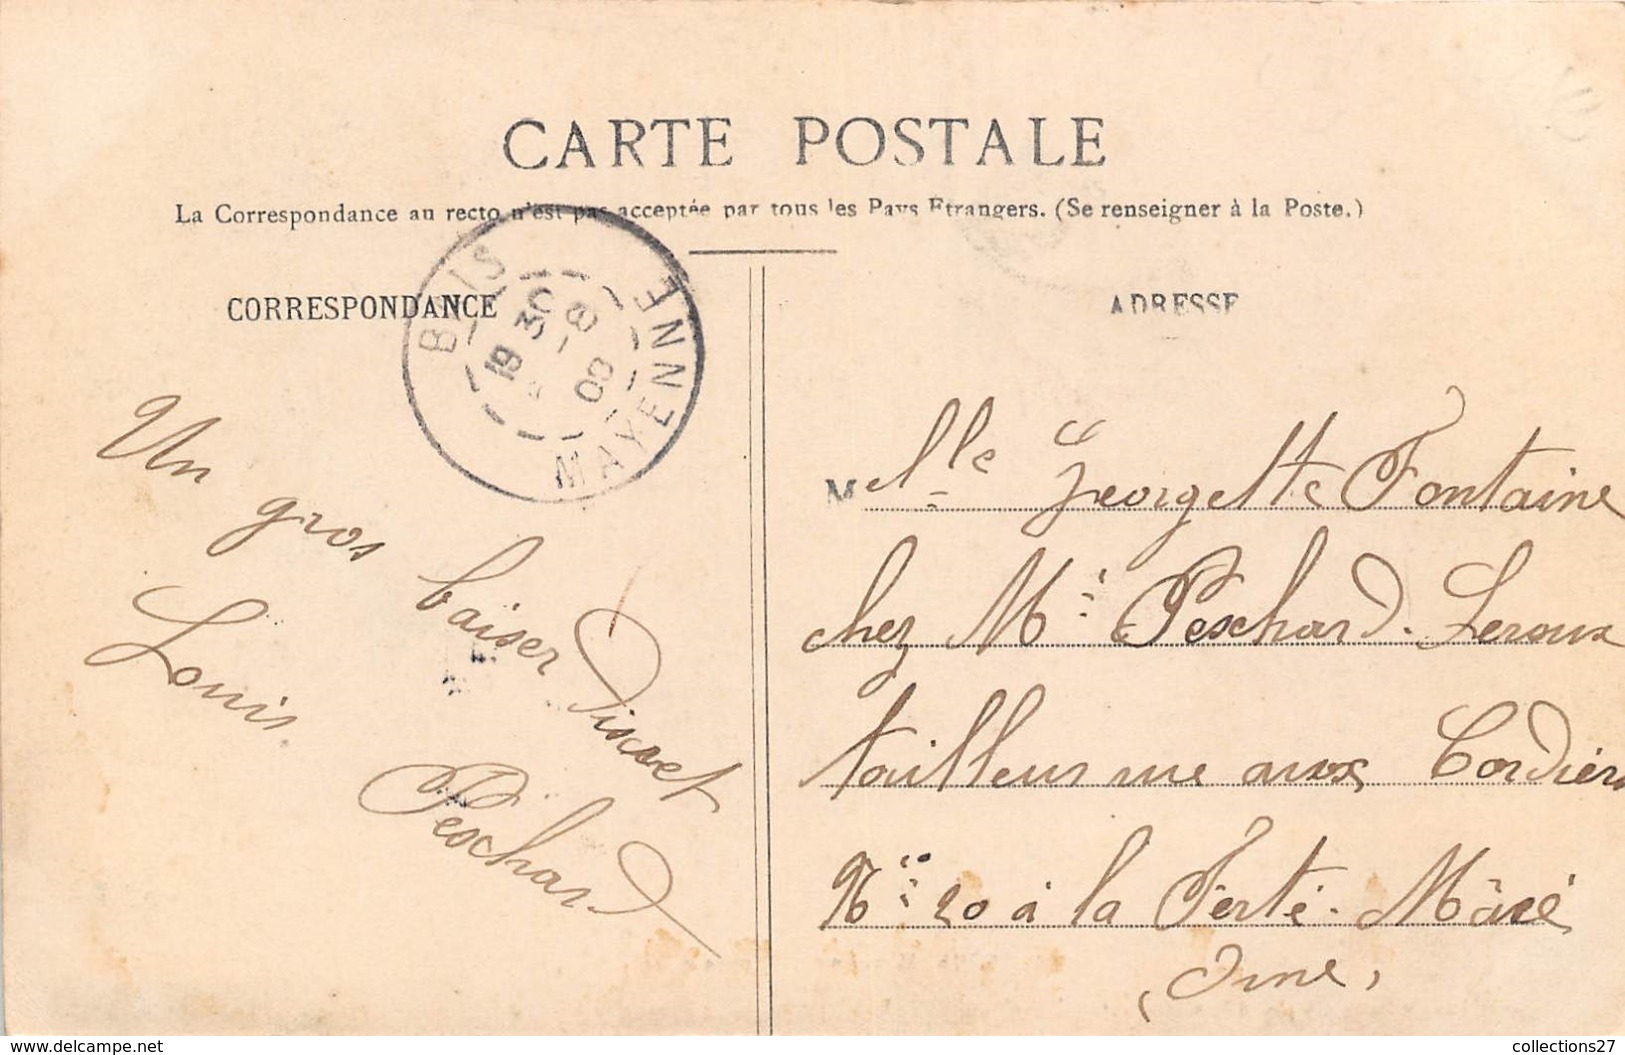 CARTE POSTALE
La Correspondance au recto n'est pas acceptée par tous les Pays Etrangers. (Se renseigner à la Poste.)
CORRESPONDANCE
BAIS
19 30
30 -8
08
MAYENNE
Un gros baiser discret
Louis Peschard
ADRESSE
Melle Georgette Fontaine
chez Mr Peschard-Leroux
tailleur rue aux Cordiers
No 20 à la Ferté-Macé
(Orne)
delcampe.net
collections27